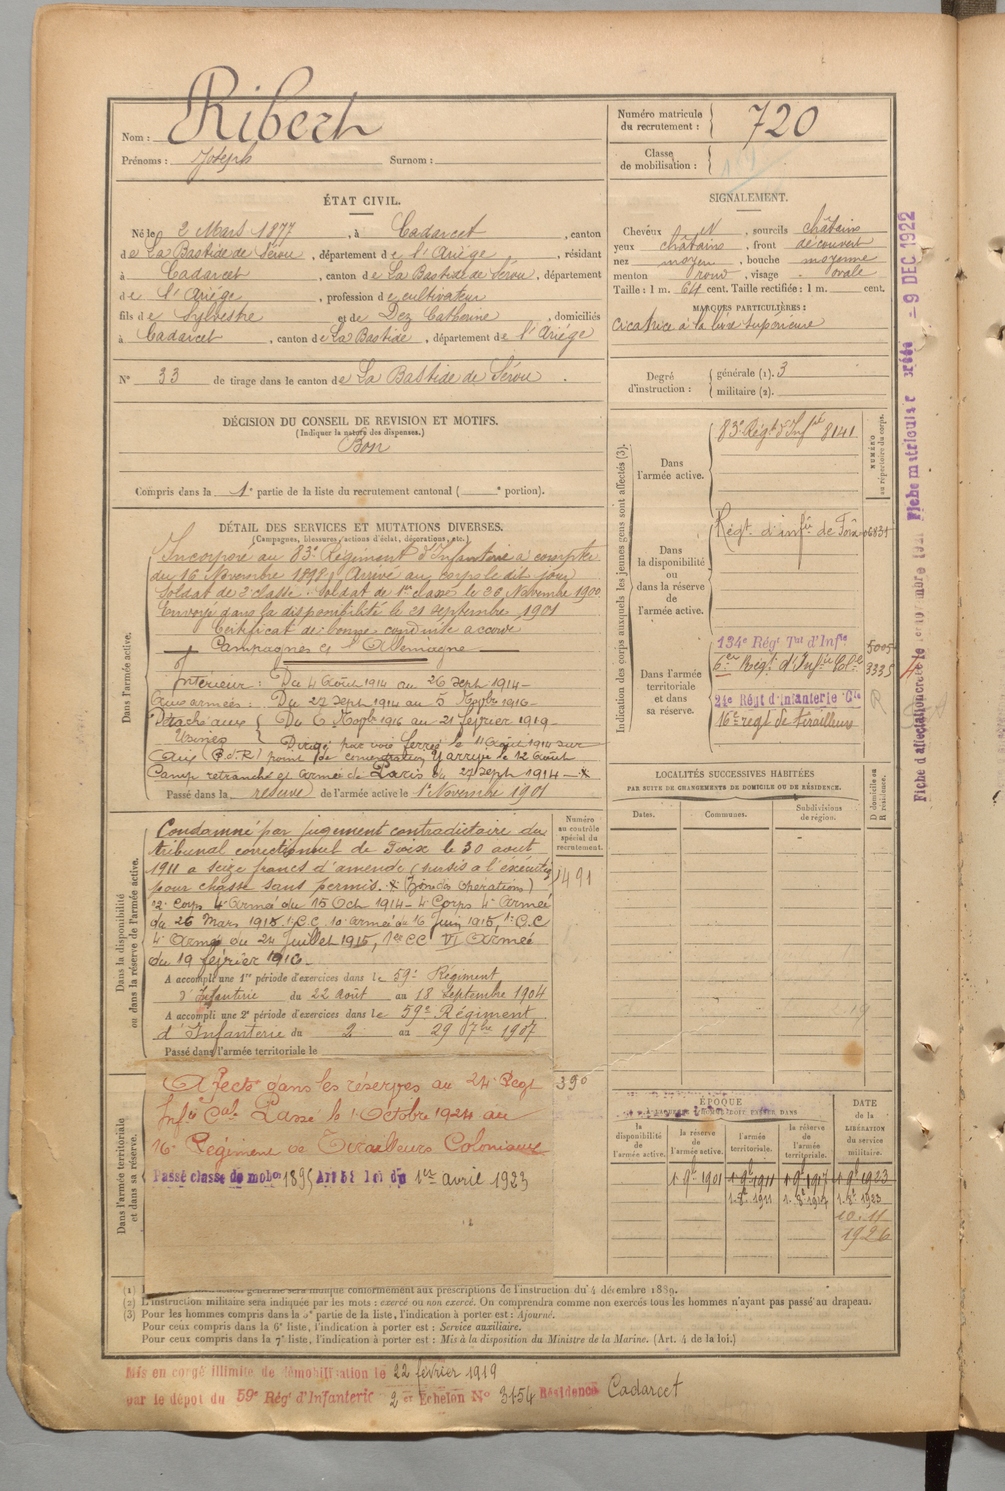 Nom : Ribert
Prénoms : Joseph Surnom :
Numéro matricule du recrutement : 720
Classe de mobilisation :
ÉTAT CIVIL.
Né le 2 Mars 1877, à Cadarcet, canton
de La Bastide de Sérou, département de l'Ariége, résidant
à Cadarcet, canton de La Bastide de Sérou, département
de l'Ariége, profession de cultivateur
fils de Sylvestre et de Dez Catherine, domiciliés
à Cadarcet, canton de La Bastide, département de l'Ariége
N° 33 de tirage dans le canton de La Bastide de Sérou.
DÉCISION DU CONSEIL DE REVISION ET MOTIFS.
(Indiquer la nature des dispenses.)
Bon
Compris dans la 1e partie de la liste du recrutement cantonal ( e portion).
SIGNALEMENT.
Cheveux N, sourcils châtains
yeux châtains, front découvert
nez moyen, bouche moyenne
menton rond, visage ovale
Taille : 1 m. 64 cent. Taille rectifiée : 1 m. cent.
MARQUES PARTICULIÈRES :
cicatrice à la lèvre supérieure
Degré d'instruction : générale (1). 3
militaire (2).
DÉTAIL DES SERVICES ET MUTATIONS DIVERSES.
(Campagnes, blessures, actions d'éclat, décorations, etc.)
Dans l'armée active.
Incorporé au 83e Régiment d'Infanterie à compter
du 16 Novembre 1898. Arrivé au corps le dit jour
Soldat de 2e classe. Soldat de 1re classe le 26 Novembre 1900
Envoyé dans la disponibilité le 21 septembre 1901
Certificat de bonne conduite accordé
Campagnes c/ l'Allemagne
Intérieur : Du 4 Août 1914 au 26 Sept 1914
Aux armées : Du 27 Sept 1914 au 5 Novbre 1916
Détaché aux Usines Du 6 Novbre 1916 au 21 février 1919
Dirigé par voie ferrée le 11 Août 1914 sur
point de concentration y arrive le 12 Août
Camp retranché et Armée de Paris du 27 Sept 1914
Passé dans la réserve de l'armée active le 1er Novembre 1901
Dans la disponibilité ou dans la réserve de l'armée active.
Condamné par jugement contradictoire du
tribunal correctionnel de Foix le 30 août
1911 à seize francs d'amende (sursis à l'exécution)
pour chasse sans permis. x (Zône des Opérations)
2e Corps 4e Armée du 15 Oct 1914 - 4e Corps 4e Armée
du 26 Mars 1915. 1er C.C. 10e Armée du 16 Juin 1915, 1er C.C
4e Armée du 24 Juillet 1915, 1er CC VI Armée
du 19 février 1916.
Numéro au contrôle spécial du recrutement.
1491
A accompli une 1re période d'exercices dans le 59e Régiment
d'Infanterie du 22 août au 18 Septembre 1904
A accompli une 2e période d'exercices dans le 59e Régiment
d'Infanterie du 2 au 29 07bre 1907
Passé dans l'armée territoriale le
Dans l'armée territoriale et dans sa réserve.
Affecté dans les réserves au 24e Régt
Inftie Cale Passé le 1er Octobre 1924 au
16e Régiment de Tirailleurs Coloniaux
Passé classe de mobon 1895 Art 58 loi du 1er avril 1923
390
Indication des corps auxquels les jeunes gens sont affectés (3).
NUMÉRO au répertoire du corps.
Dans l'armée active.
83e Régt d'Infrie 8141
Dans la disponibilité ou dans la réserve de l'armée active.
Régt. d'infie de Foix 06831
Dans l'armée territoriale et dans sa réserve.
134e Régt Tal d'Infie 5005
6e Régt. d'Infie Colle 3335
24e Régt d'Infanterie Cle
16e regt de tirailleurs
LOCALITÉS SUCCESSIVES HABITÉES
PAR SUITE DE CHANGEMENTS DE DOMICILE OU DE RÉSIDENCE.
Dates. Communes. Subdivisions de région. D domicile ou R résidence.
ÉPOQUE
la disponibilité de l'armée active. la réserve de l'armée active. l'armée territoriale. la réserve de l'armée territoriale. DATE de la LIBÉRATION du service militaire.
1 9bre 1901 1 9bre 1911 1 9bre 1917 1 9bre 1923
1. 8bre 1911 1. 8bre 1917 1. 8bre 1923
10.11
1926
l'instruction générale sera indiquée conformément aux prescriptions de l'instruction du 4 décembre 1889.
(2) L'instruction militaire sera indiquée par les mots : exercé ou non exercé. On comprendra comme non exercés tous les hommes n'ayant pas passé au drapeau.
(3) Pour les hommes compris dans la 5e partie de la liste, l'indication à porter est : Ajourné.
Pour ceux compris dans la 6e liste, l'indication à porter est : Service auxiliaire.
Pour ceux compris dans la 7e liste, l'indication à porter est : Mis à la disposition du Ministre de la Marine. (Art. 4 de la loi.)
Mis en congé illimité de démobilisation le 22 février 1919
par le dépot du 59e Régt d'Infanterie 2e Echelon N° 3154 Résidence Cadarcet
Fiche matriculaire créée - 9 DEC 1922